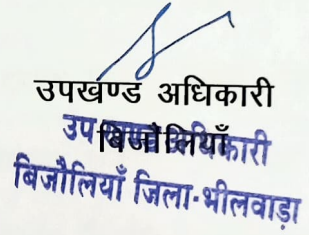 उपखण्ड अधिकारी
बिजौलियाँ
उप खण्ड अधिकारी
बिजौलियाँ जिला-भीलवाड़ा